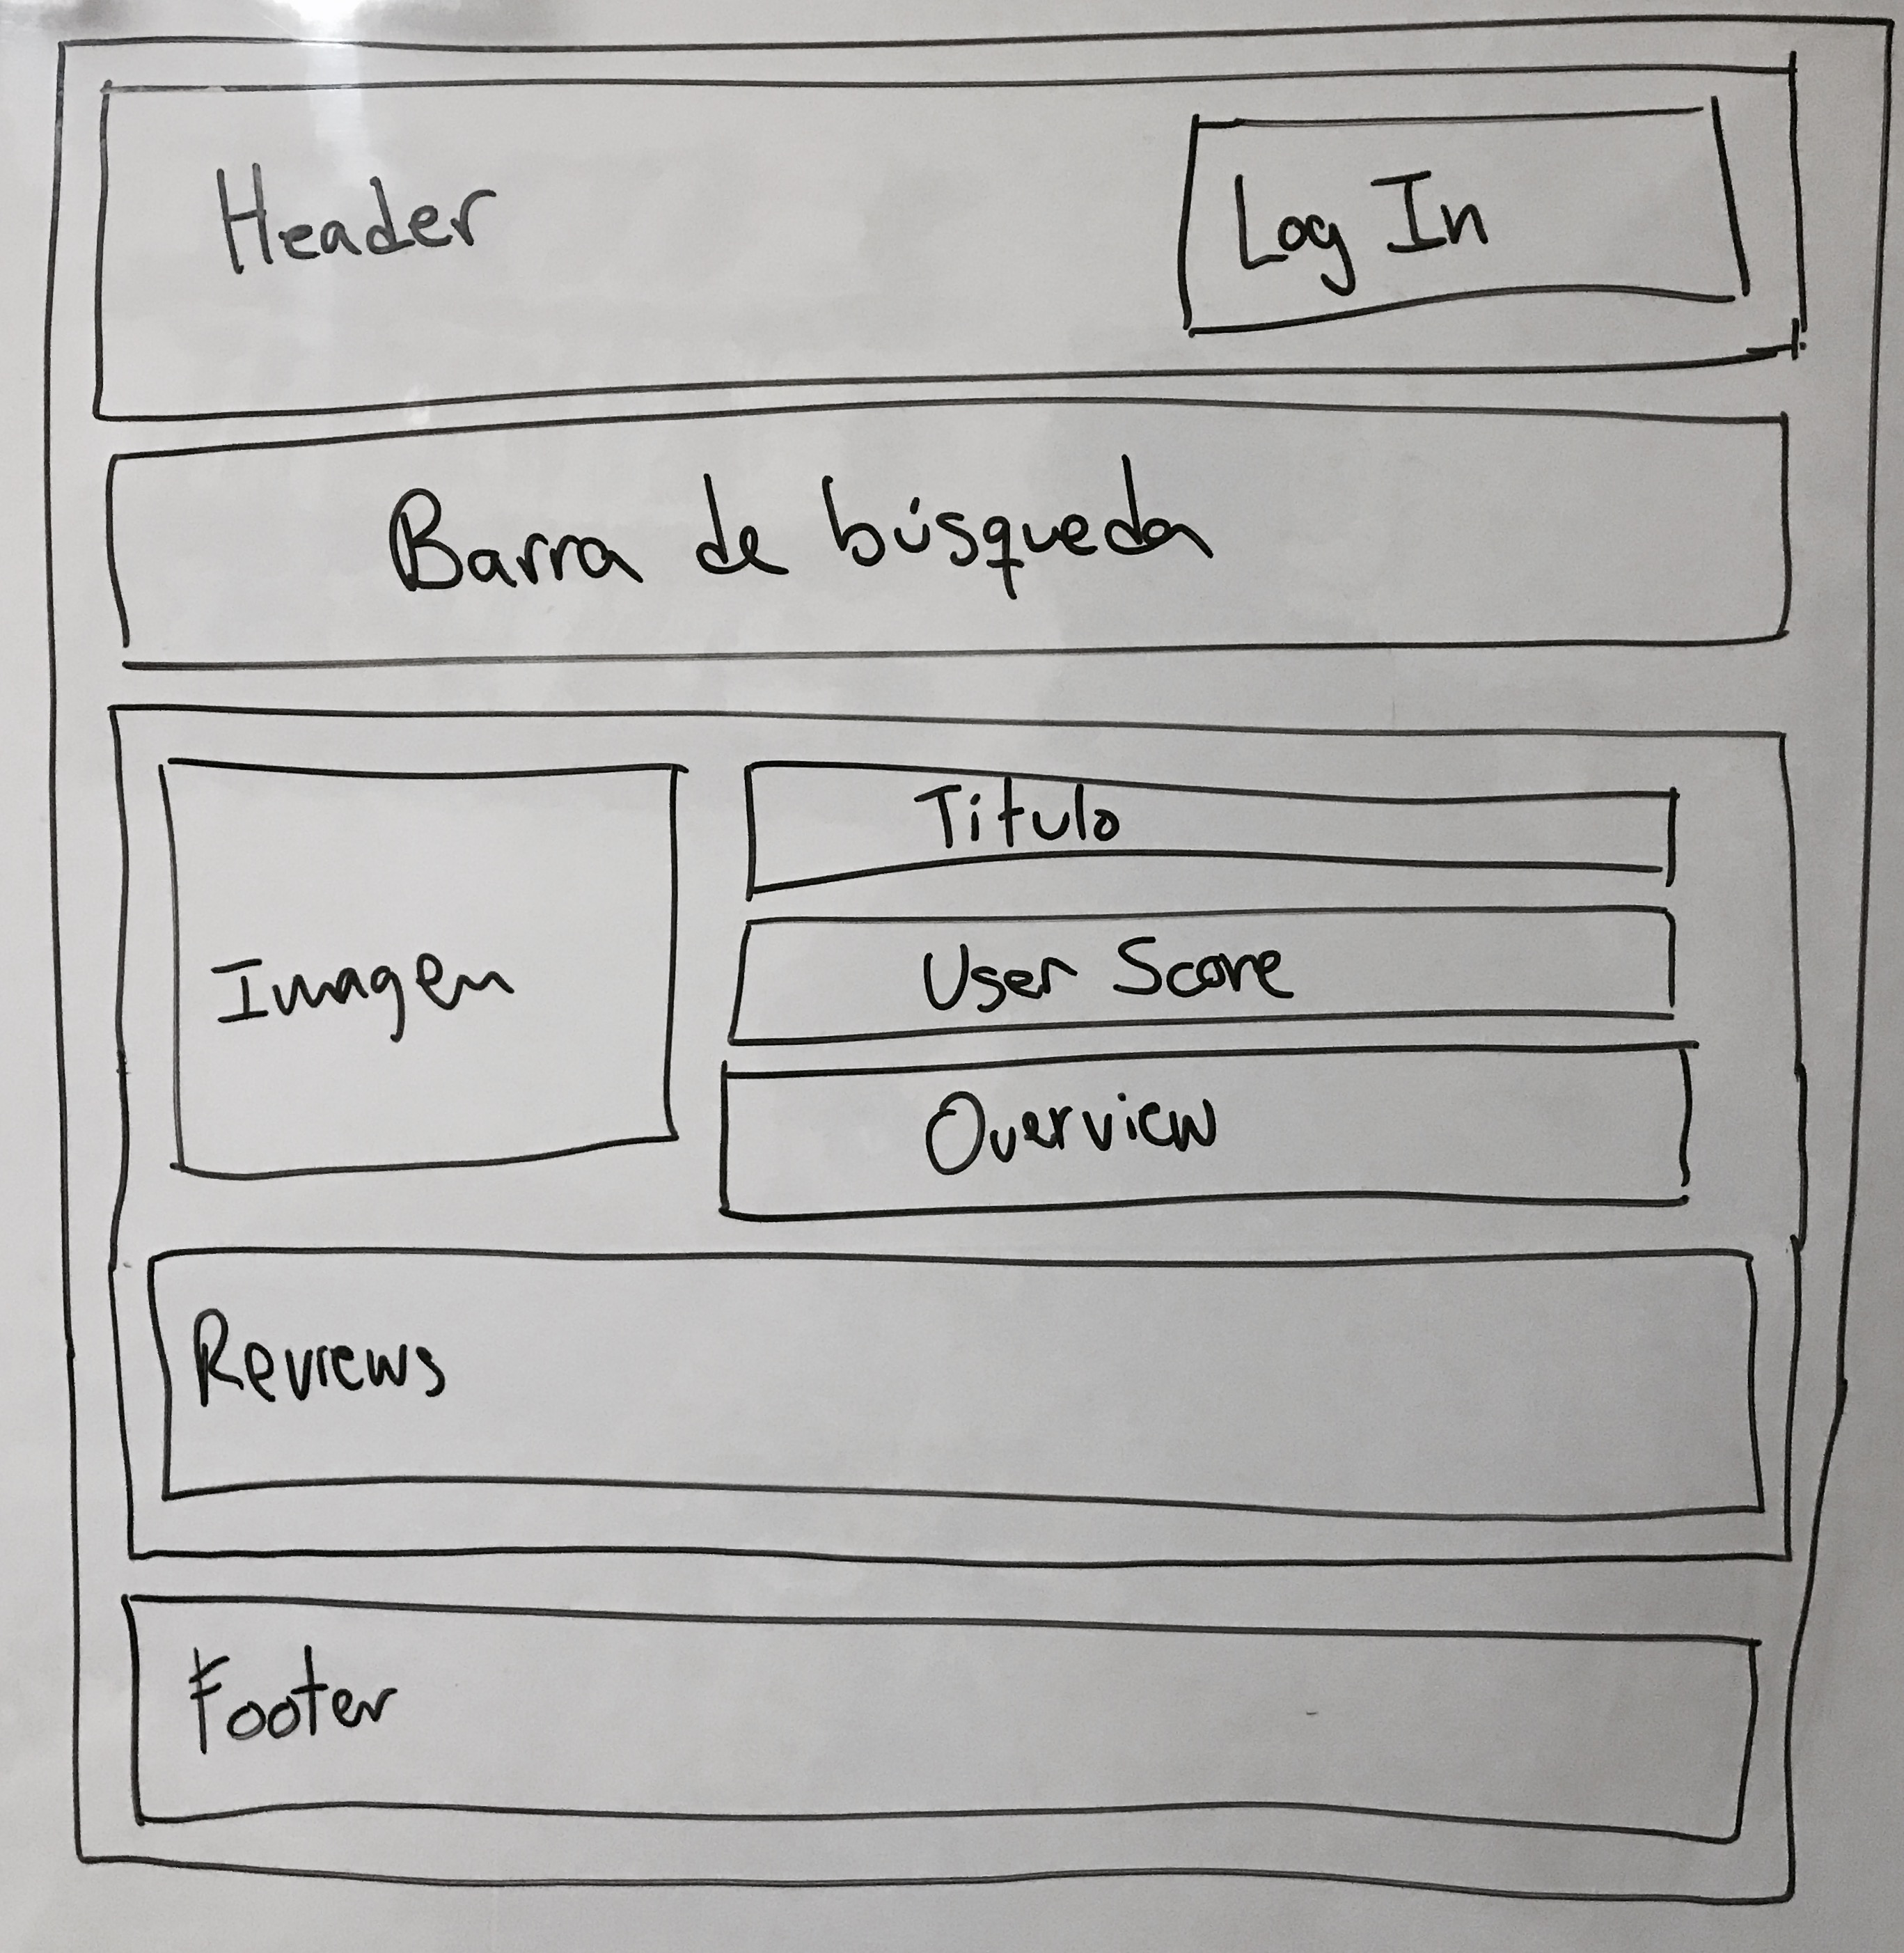 Header
Log In
Barra de búsqueda
Titulo
User Score
Imagen
Overview
Reviews
Footer